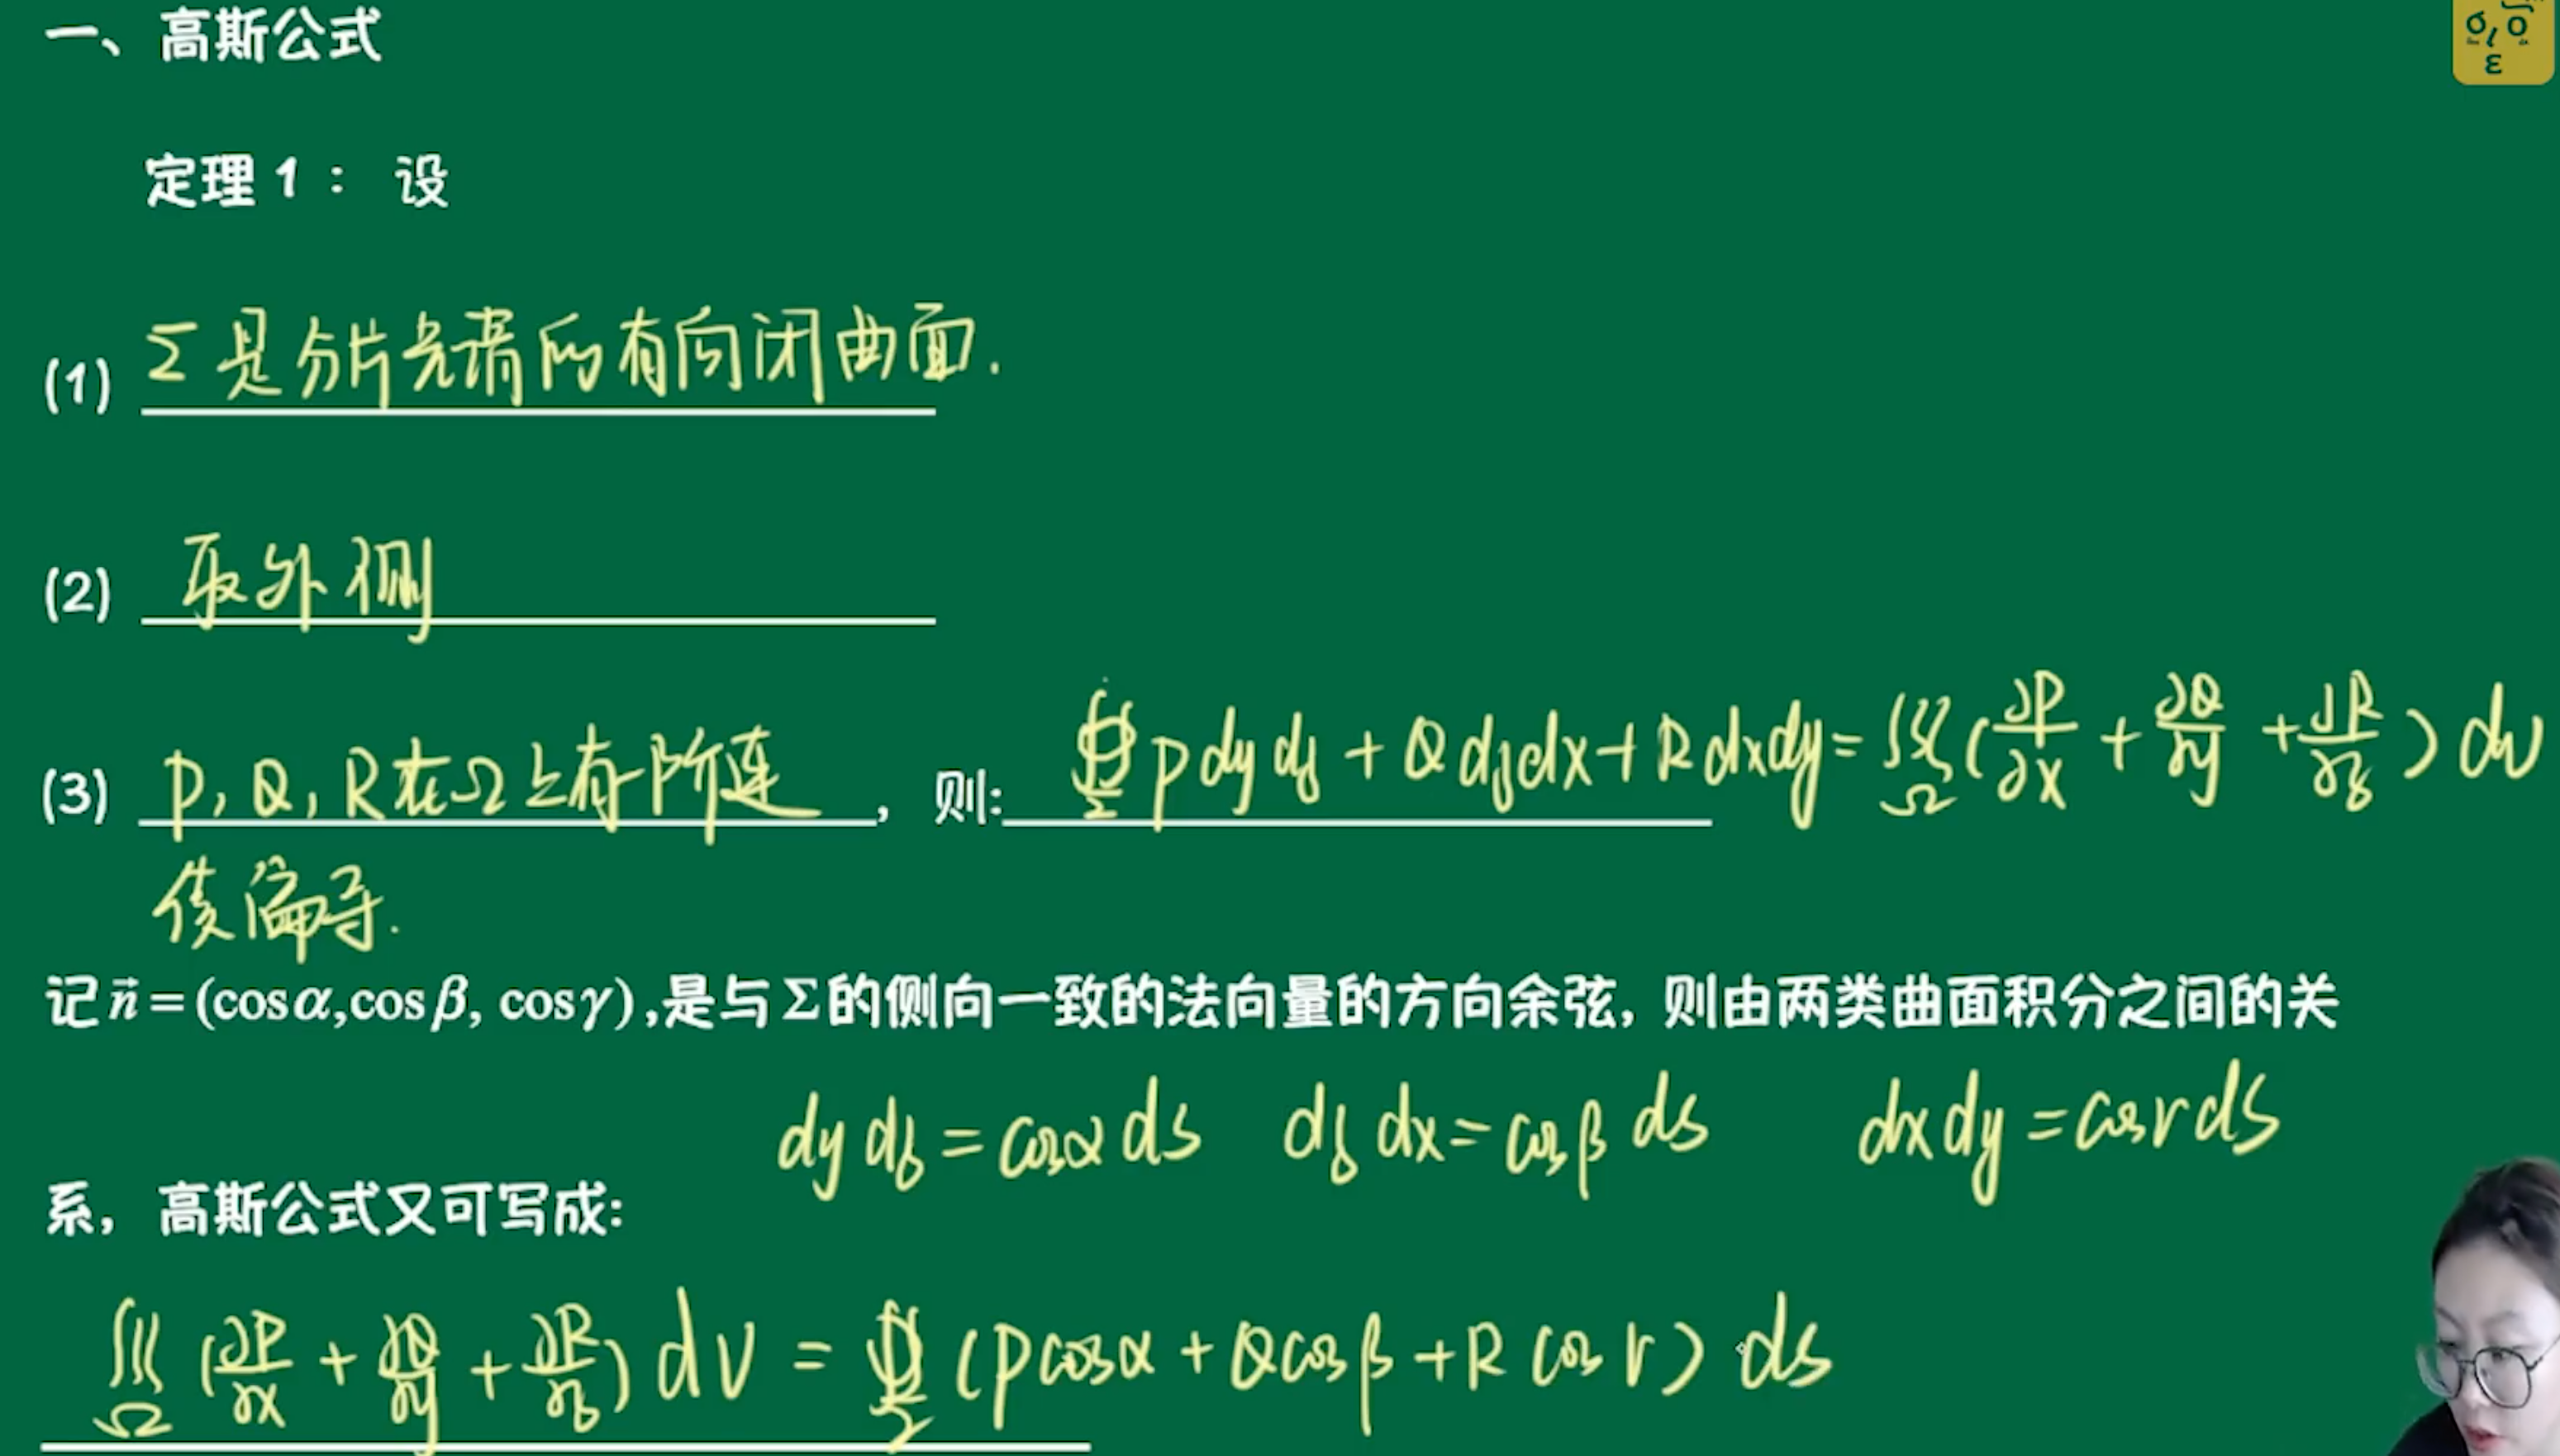 一、高斯公式
定理 1： 设
(1) Σ是分片光滑的有向闭曲面.
(2) 取外侧
(3) P, Q, R在Ω上有一阶连续偏导. ，则: ∯_Σ Pdydz + Qdzdx + Rdxdy = ∭_Ω (∂P/∂x + ∂Q/∂y + ∂R/∂z) dv
记 n⃗ = (cosα,cosβ, cosγ) ,是与Σ的侧向一致的法向量的方向余弦，则由两类曲面积分之间的关
dydz = cosα ds dzdx = cosβ ds dxdy = cosγ ds
系，高斯公式又可写成:
∭_Ω (∂P/∂x + ∂Q/∂y + ∂R/∂z) dv = ∯_Σ (Pcosα + Qcosβ + Rcosγ) ds